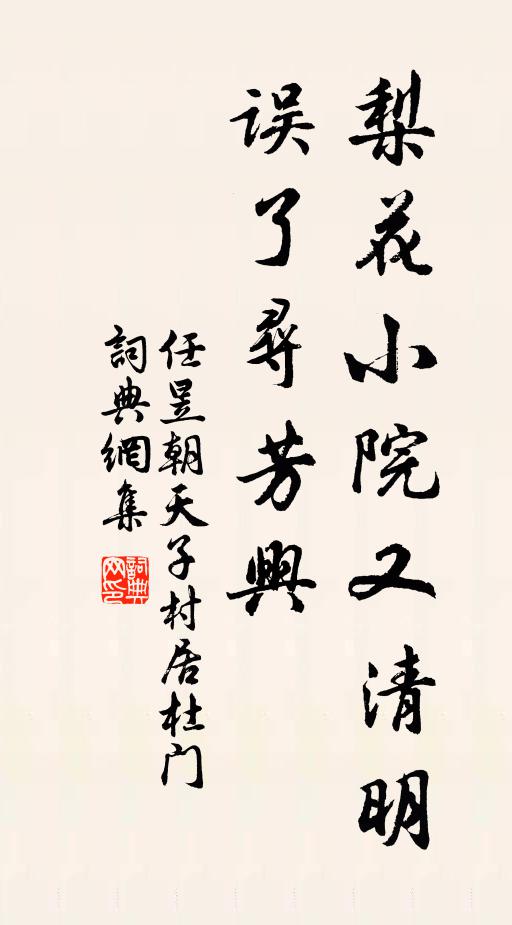 梨花小院又清明
误了尋芳興
任昱朝天子村居杜门
詞典網集
詞典网印